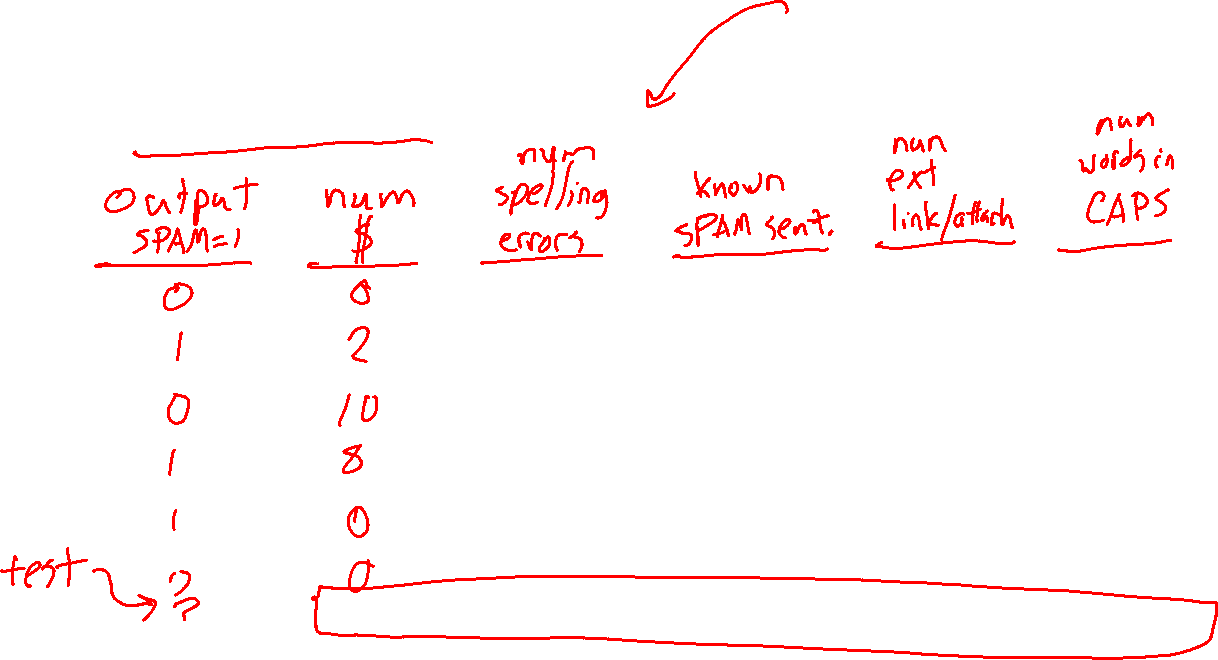 Output SPAM=1
num $
num spelling errors
known SPAM sent.
num ext link/attach
num words in CAPS
0 0
1 2
0 10
1 8
1 0
test ? 0